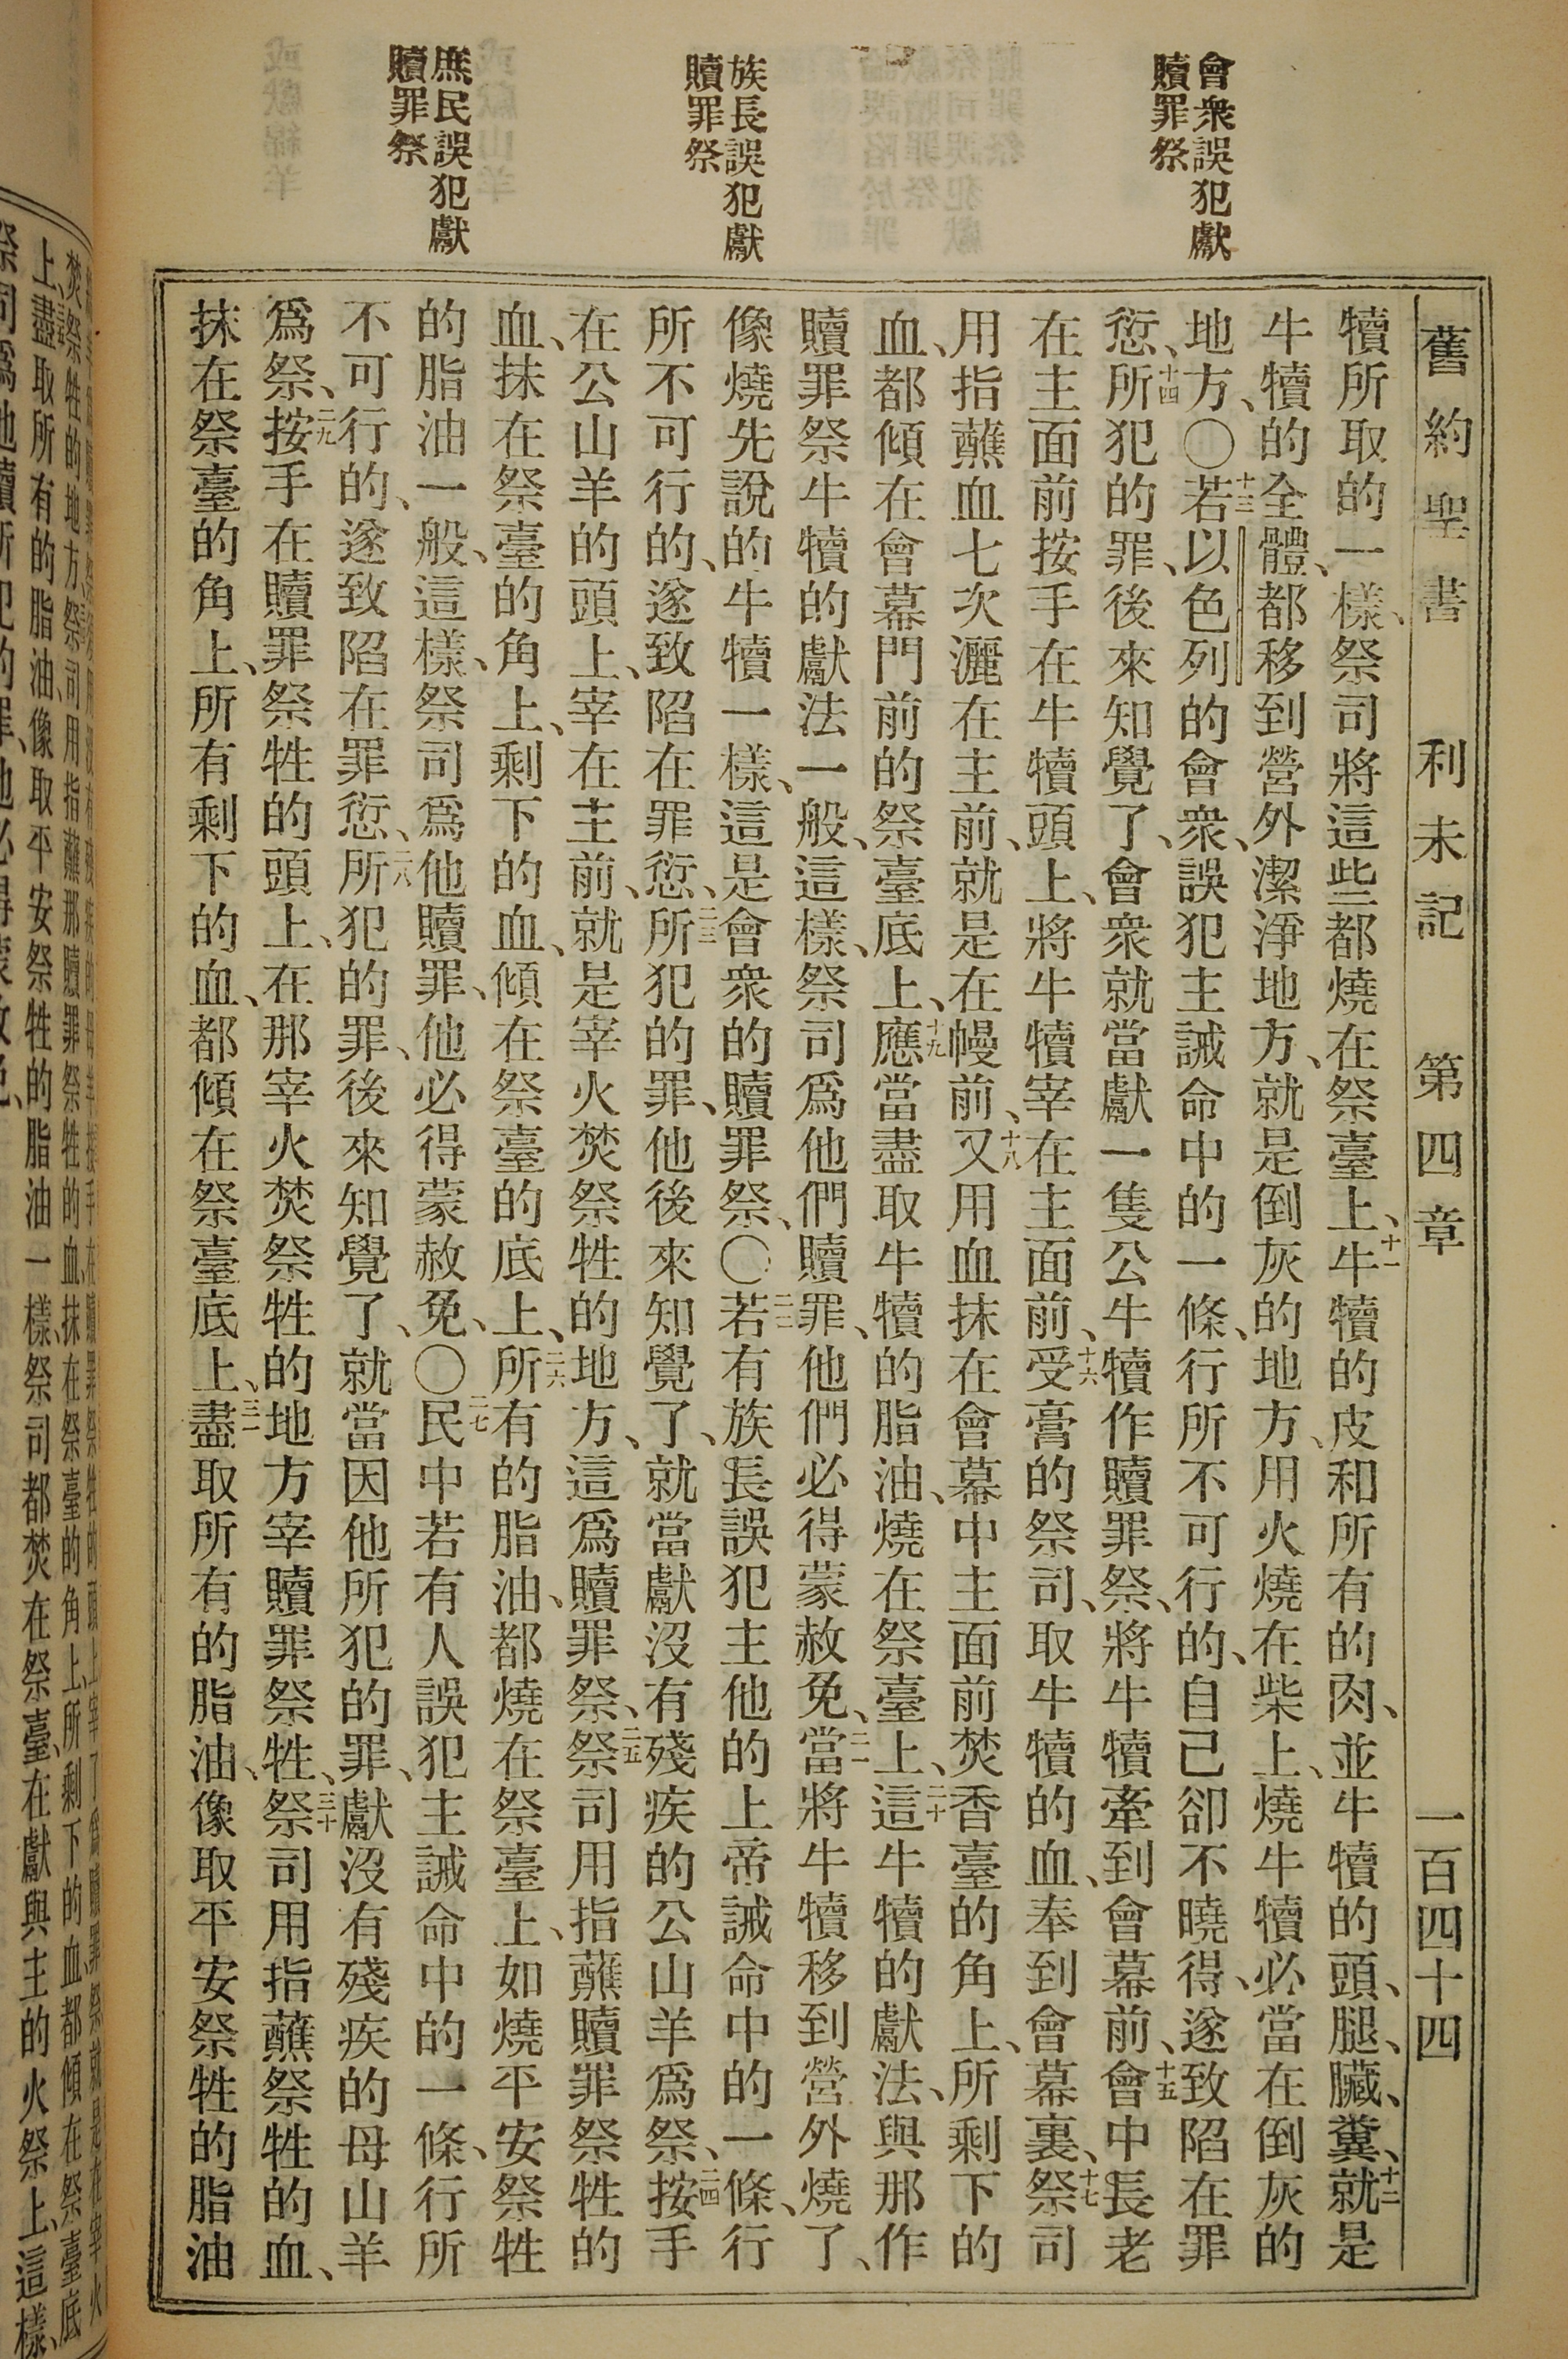 舊約聖書 利未記 第四章 一百四十四
會衆誤犯獻
贖罪祭
族長誤犯獻
贖罪祭
庶民誤犯獻
贖罪祭
犢所取的一樣、祭司將這些都燒在祭臺上、十一牛犢的皮和所有的肉、並牛犢的頭、腿、臟、糞、十二就是
牛犢的全體、都移到營外潔淨地方、就是倒灰的地方、用火燒在柴上、燒牛犢必當在倒灰的
地方、〇十三若以色列的會衆、誤犯主誡命中的一條、行所不可行的、自己卻不曉得、遂致陷在罪
愆、十四所犯的罪、後來知覺了、會衆就當獻一隻公牛犢作贖罪祭、將牛犢牽到會幕前、十五會中長老
在主面前按手在牛犢頭上、將牛犢宰在主面前、十六受膏的祭司、取牛犢的血、奉到會幕裏、十七祭司
用指蘸血七次灑在主前、就是在幔前、十八又用血抹在會幕中主面前焚香臺的角上、所剩下的
血、都傾在會幕門前的祭臺底上、十九應當盡取牛犢的脂油、燒在祭臺上、二十這牛犢的獻法、與那作
贖罪祭牛犢的獻法一般、這樣、祭司爲他們贖罪、他們必得蒙赦免、二一當將牛犢移到營外燒了、
像燒先說的牛犢一樣、這是會衆的贖罪祭、〇二二若有族長誤犯主他的上帝誡命中的一條、行
所不可行的、遂致陷在罪愆、二三所犯的罪、他後來知覺了、就當獻沒有殘疾的公山羊爲祭、二四按手
在公山羊的頭上、宰在主前、就是宰火焚祭牲的地方、這爲贖罪祭、二五祭司用指蘸贖罪祭牲的
血、抹在祭臺的角上、剩下的血、傾在祭臺的底上、二六所有的脂油、都燒在祭臺上、如燒平安祭牲
的脂油一般、這樣、祭司爲他贖罪、他必得蒙赦免、〇二七民中若有人誤犯主誡命中的一條、行所
不可行的、遂致陷在罪愆、二八所犯的罪、後來知覺了、就當因他所犯的罪、獻沒有殘疾的母山羊
爲祭、二九按手在贖罪祭牲的頭上、在那宰火焚祭牲的地方宰贖罪祭牲、三十祭司用指蘸祭牲的血、
抹在祭臺的角上、所有剩下的血、都傾在祭臺底上、三一盡取所有的脂油、像取平安祭牲的脂油
焚祭牲的地方、祭司用指蘸那贖罪祭牲的血、抹在祭臺的角上、所剩下的血、都傾在祭臺底
上、盡取所有的脂油、像取平安祭牲的脂油一樣、祭司都焚在祭臺、在獻與主的火祭上、這樣、
祭司爲他贖所犯的罪、他必得蒙赦免、